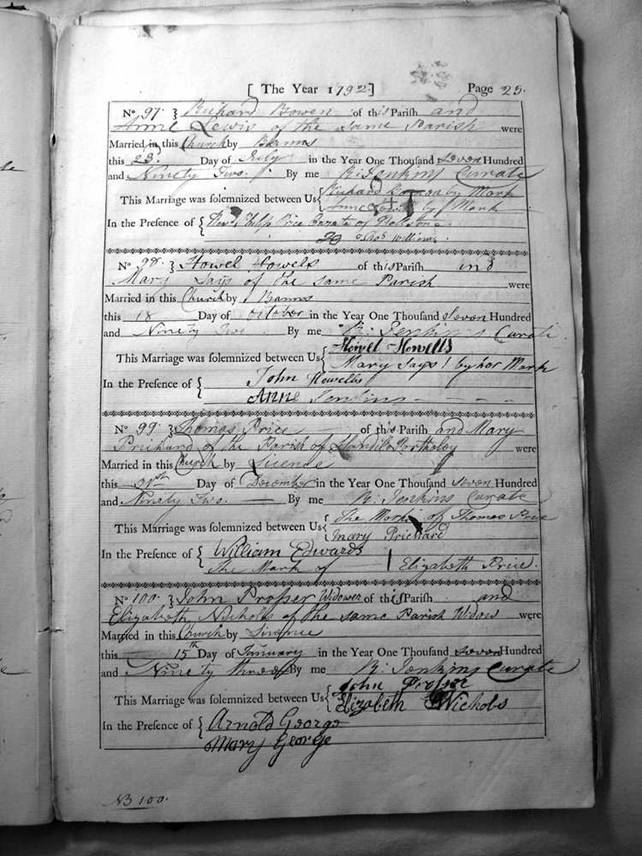 [ The Year 1792 ] Page 25.
No 97. } Richard Bowen of this Parish and
Anne Lewis of the same Parish were
Married in this Church by Banns
this 23. Day of July in the Year One Thousand Seven Hundred
and Ninety Two. By me R: Jenkins Curate
This Marriage was solemnized between Us { Richard Bowen by Mark
Anne Lewis by Mark
In the Presence of { Price Curate of
No 98. } Howel Howels of this Parish and
Mary Says of the same Parish were
Married in this Church by Banns
this 18 Day of October in the Year One Thousand Seven Hundred
and Ninety Two By me R: Jenkins Curate
This Marriage was solemnized between Us { Howel Howells
Mary Says by her Mark
In the Presence of { John Howells
Anne Jenkins
No 99. } Thomas Price of this Parish and Mary
Prichard of the Parish of Llandilo Bertholey
Married in this Church by Licence
this 31st Day of December in the Year One Thousand Seven Hundred
and Ninety Two. By me R: Jenkins Curate
This Marriage was solemnized between Us { The Mark of Thomas Price
Mary Prichard
In the Presence of { William Edwards
The Mark of | Elizabeth Price.
No 100. } John Prosser Widower of this Parish and
Elizabeth Nichols of the same Parish Widow were
Married in this Church by
this 15th Day of January in the Year One Thousand Seven Hundred
and Ninety three By me R: Jenkins Curate
This Marriage was solemnized between Us { John Prosser
Elizabeth Nichols
In the Presence of { Arnold George
Mary George
NB 100.